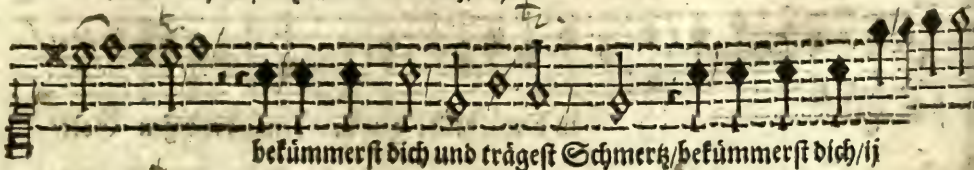 bekümmerst dich und trägest Schmertz/bekümmerst dich/ij